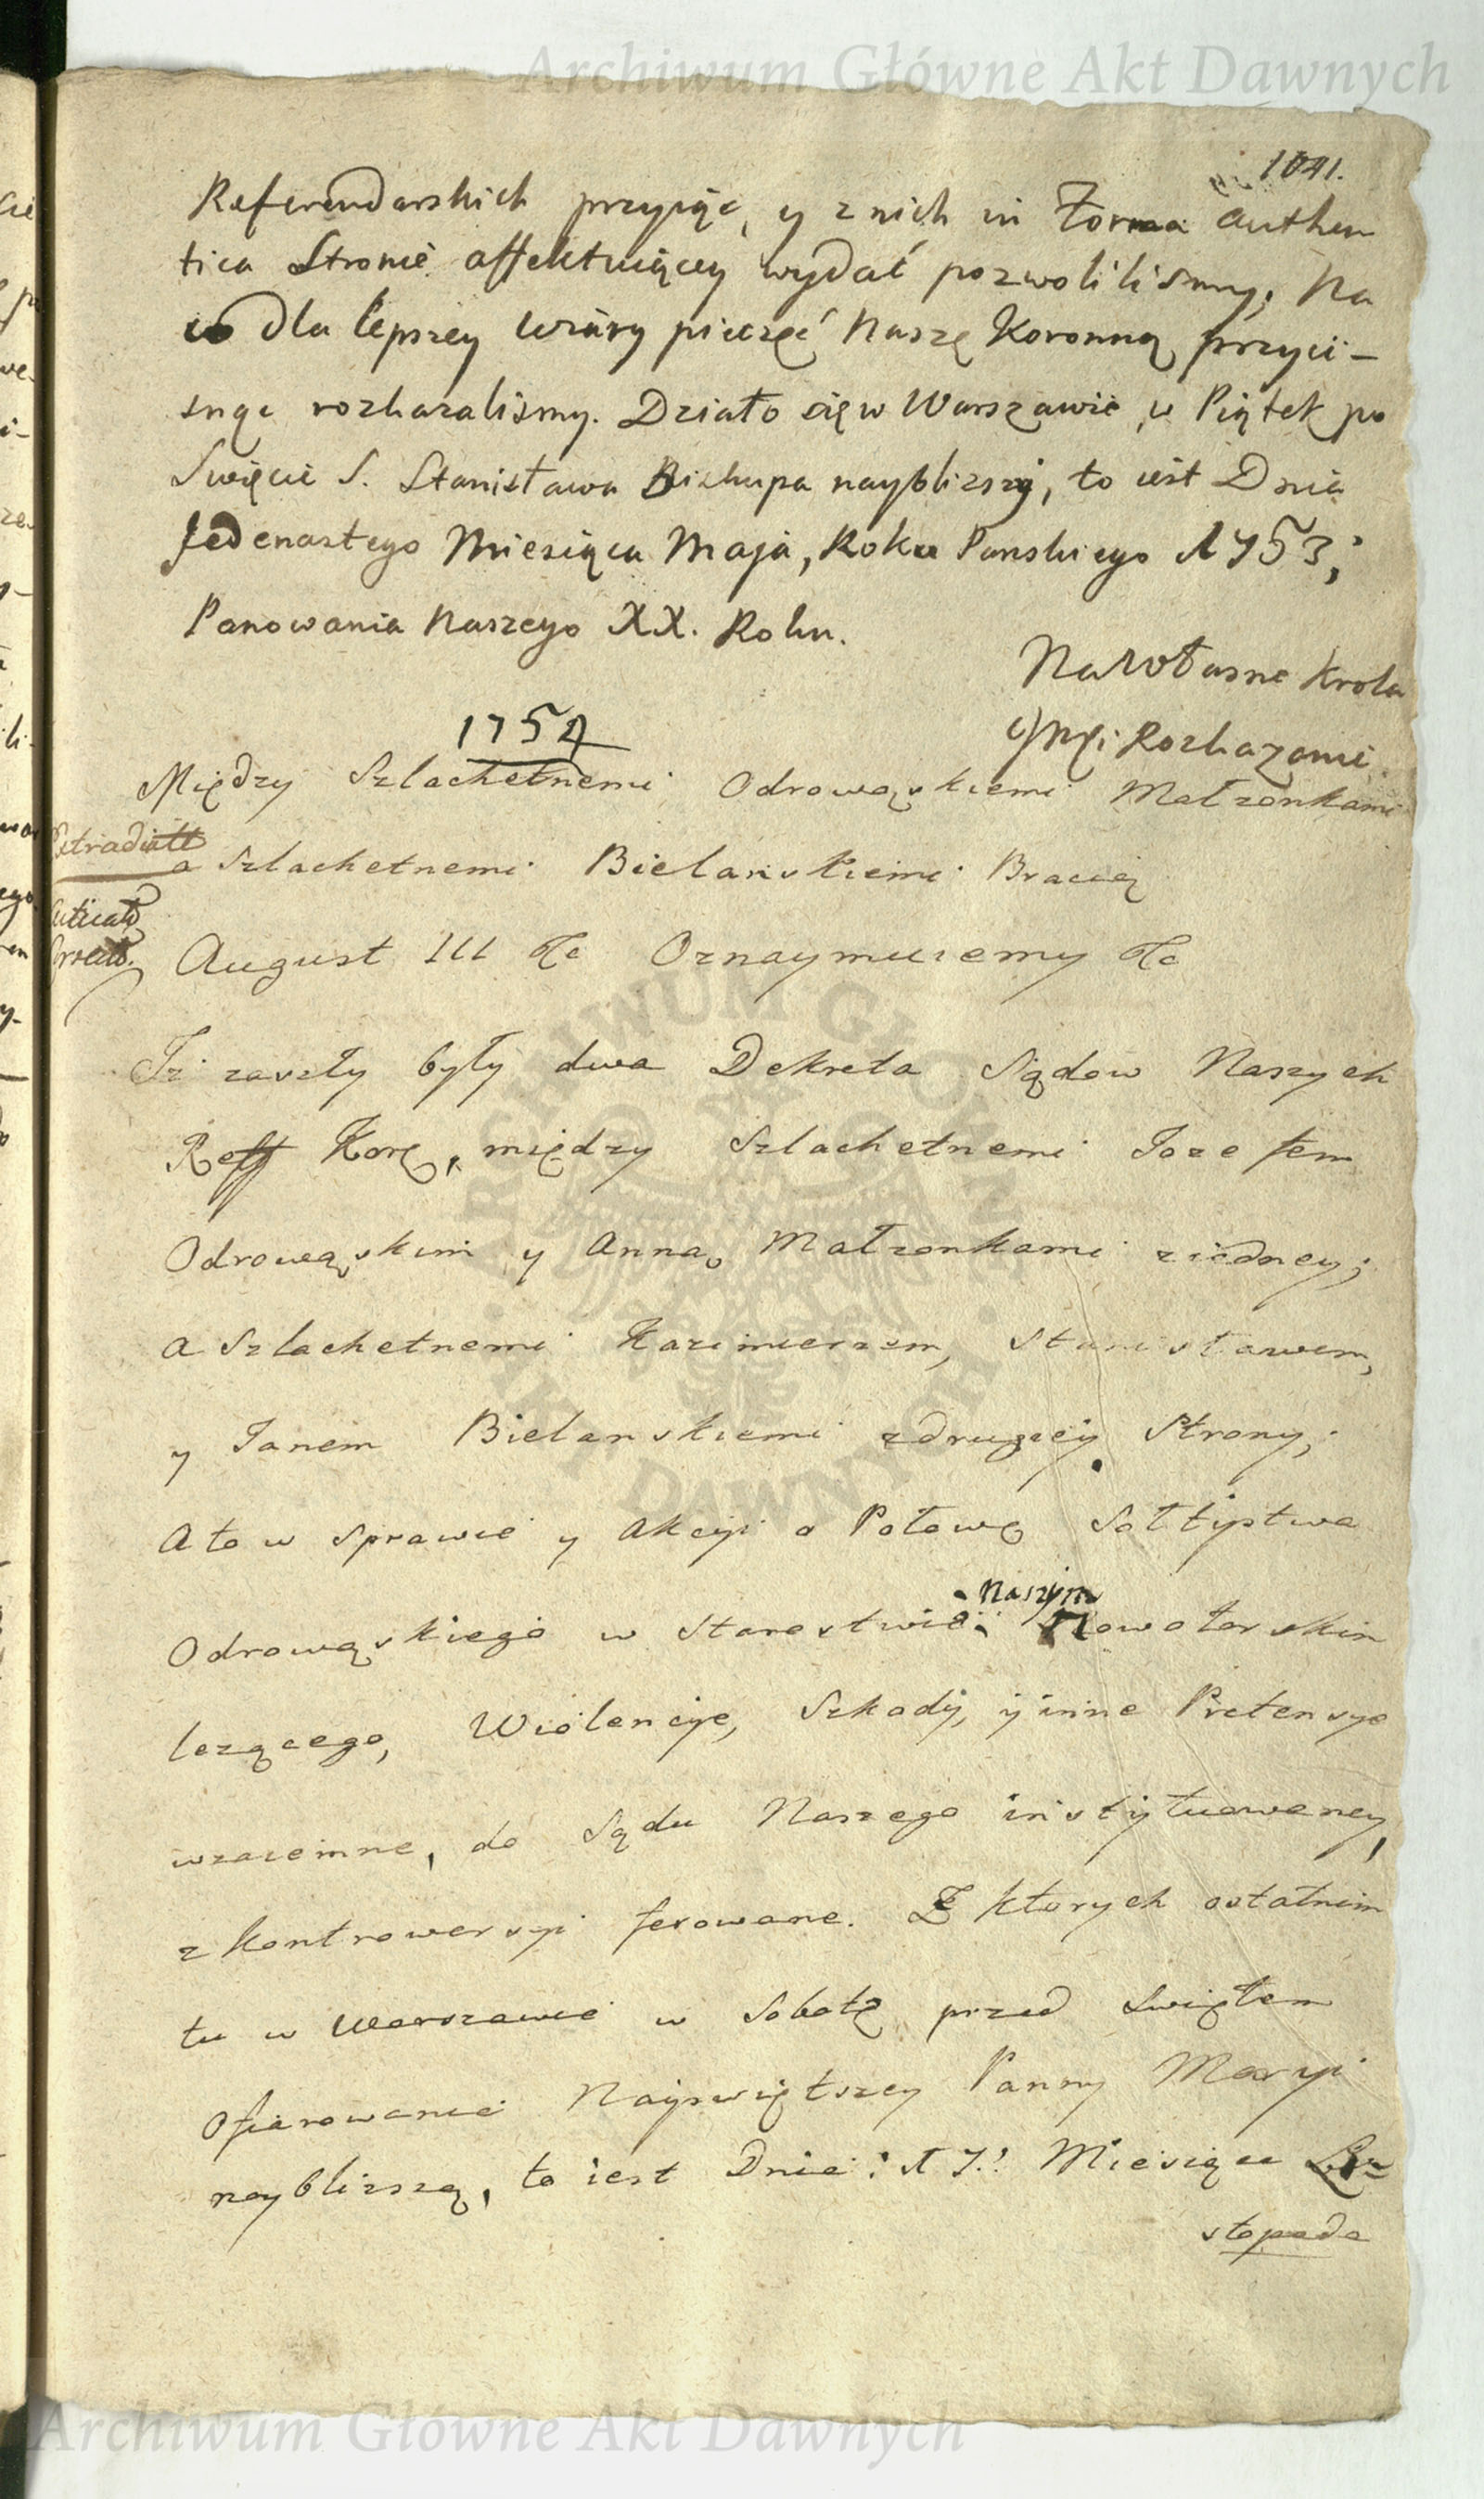 Archiwum Główne Akt Dawnych
1041.
Referendarskich przyiąc, y z nich in Forma Authen
tica Stronie affektuiącey wydać pozwoliliśmy, Na
co dla lepszey wiary pieczęć Naszę Koronną przyci-
snąc rozkazaliśmy. Działo się w Warszawie, w Piątek po
Swięcie S. Stanisława Biskupa nayblizszy, to iest Dnia
Jedenastego Miesiąca Maja, Roku Panskiego 1753;
Panowania Naszego XX. Roku.
Na Własne Krola
Jmci Rozkazanie
1754
Między Szlachetnemi Odrowąskiemi Małzonkami
Extradit
a Szlachetnemi Bielanskiemi Bracią
August III &c Oznaymuiemy &c
Iz zaszły były dwa Dekreta Sądow Naszych
Reff Korę, między Szlachetnemi Jozefem
Odrowąskim y Anną Małzonkami z iedney;
a Szlachetnemi Kazimierzem, Stanisławem,
y Janem Bielanskiemi z drugiey Strony;
A to w Sprawie y Akcyi o Połowę Sołtystwa
Naszym
Odrowąskiego w Starostwie Nowotarskim
lezącego, Wiolencye, Szkody, y inne Pretensye
wzaiemne, do Sądu Naszego instytuowaney,
z Kontrowersyi ferowane. Z ktorych ostatnim
tu w Warszawie w Sobotę przed Swiętem
Ofiarowania Nayswiętszey Panny Maryi
nayblizszą, to iest Dnia 17. Miesiąca Li=
stopada
Archiwum Główne Akt Dawnych